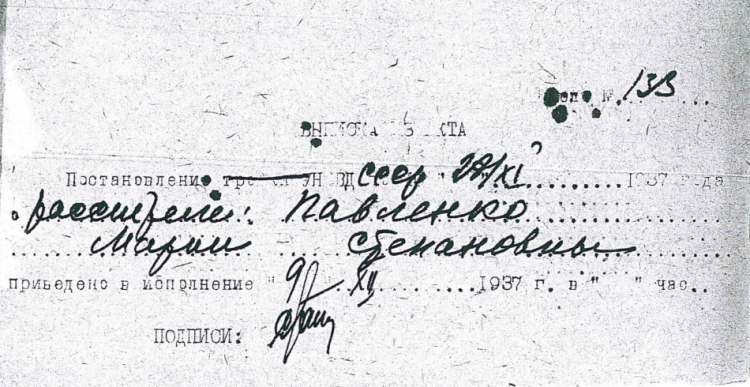 Дело №. 133
ВЫПИСКА ИЗ АКТА
Постановление тройки УНКВД СССР 28/XI 1937 года
о расстреле: Павленко
Марии Степановны
приведено в исполнение "9" XII 1937 г. в " " час.
ПОДПИСИ: